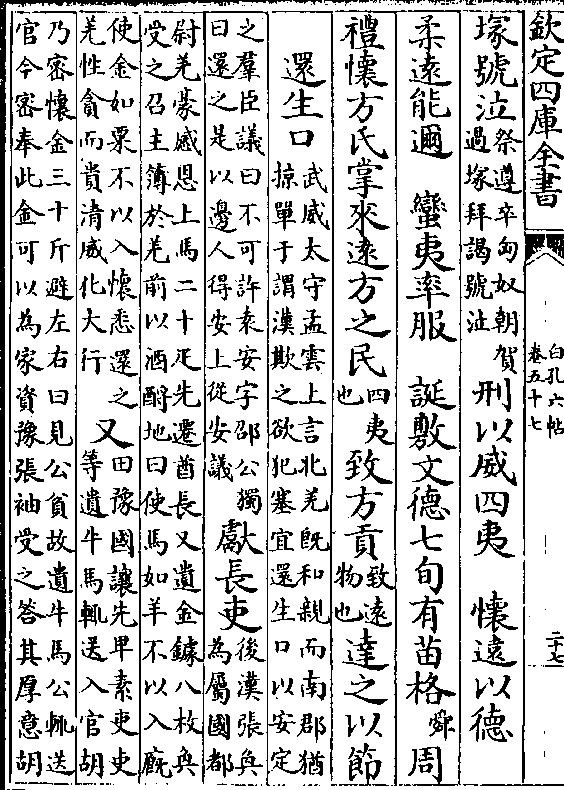 欽定四庫全書
白孔六帖
卷五十七
二十七
塚號泣祭遵卒匈奴朝賀過塚拜謁號泣刑以威四夷　懷遠以德
柔遠能邇　蠻夷率服　誕敷文德七旬有苗格舜周
禮懷方氏掌來遠方之民四夷也致方貢致遠物也達之以節
還生口武威太守孟雲上言北羌既和親而南郡猶
掠單于謂漢欺之欲犯塞宜還生口以安定
之羣臣議曰不可許袁安字邵公獨
曰還之是以邊人得安上從安議獻長吏後漢張奐
為屬國都
尉羌豪感恩上馬二十疋先遷酋長又遺金鐻八枚奐
受之召主簿於羌前以酒酹地曰使馬如羊不以入廐
使金如粟不以入懷悉還之
羌性貪而貴清威化大行又田豫國讓先卑素吏吏
等遺牛馬輒送入官胡
乃密懷金三十斤避左右曰見公貧故遺牛馬公輒送
官今密奉此金可以為家資豫張袖受之答其厚意胡